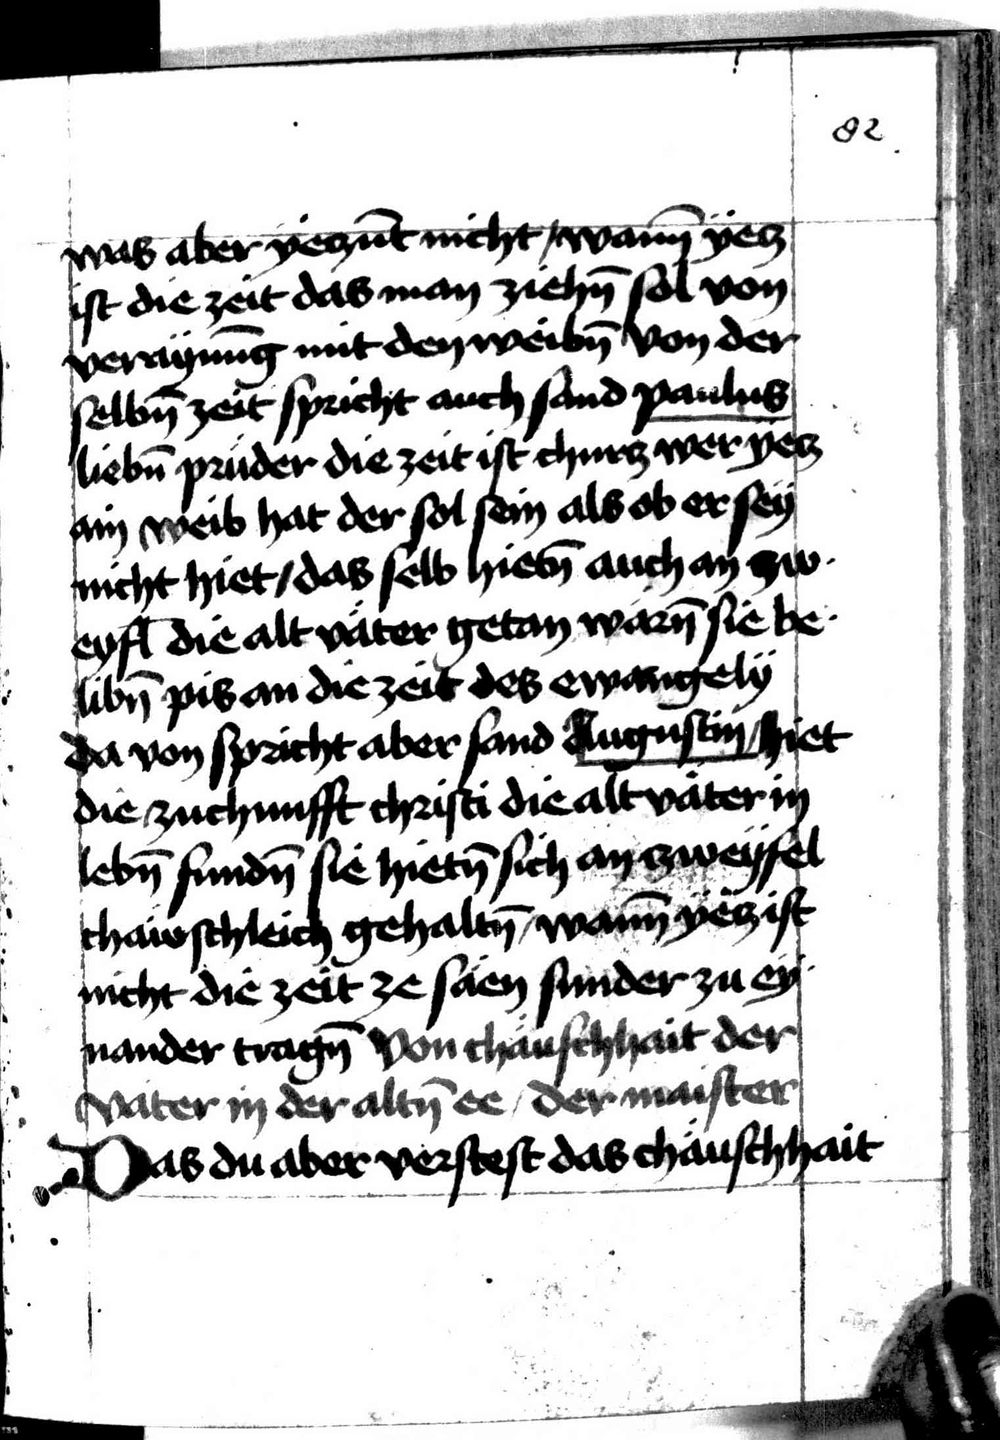 82
was aber yeczu̅t nicht / wan̅ ÿecz
ist die zeit das man ziehn̅ sol von
veraynu̅g mit den weibn̅ von der
selbn̅ zeit spricht auch sand paulus
liebn̅ prüder die zeit ist churcz wer yecz
ain weib hat der sol sein als ob er seÿ
nicht hiet / das selb hietn̅ auch an zw
eyfl die alt väter getan wärn̅ sie be
libn̅ pis an die zeit des ewangely
da von spricht aber sand Augustin / hiet
die zuchunfft christi die alt väter in
lebn̅ fundn̅ sie hietn̅ sich an zweyfel
chawschleich gehaltn̅ / wan̅ ÿecz ist
nicht die zeit ze säen sunder zu ey
nander tragn̅ Von chäuschhait der
väter in der altn̅ ee / der maister
Das du aber verstest das chäuschhait